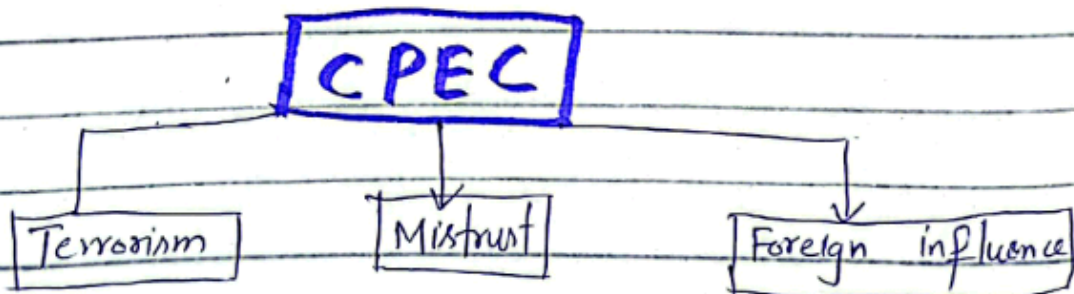 CPEC
Terrorism Mistrust Foreign influence